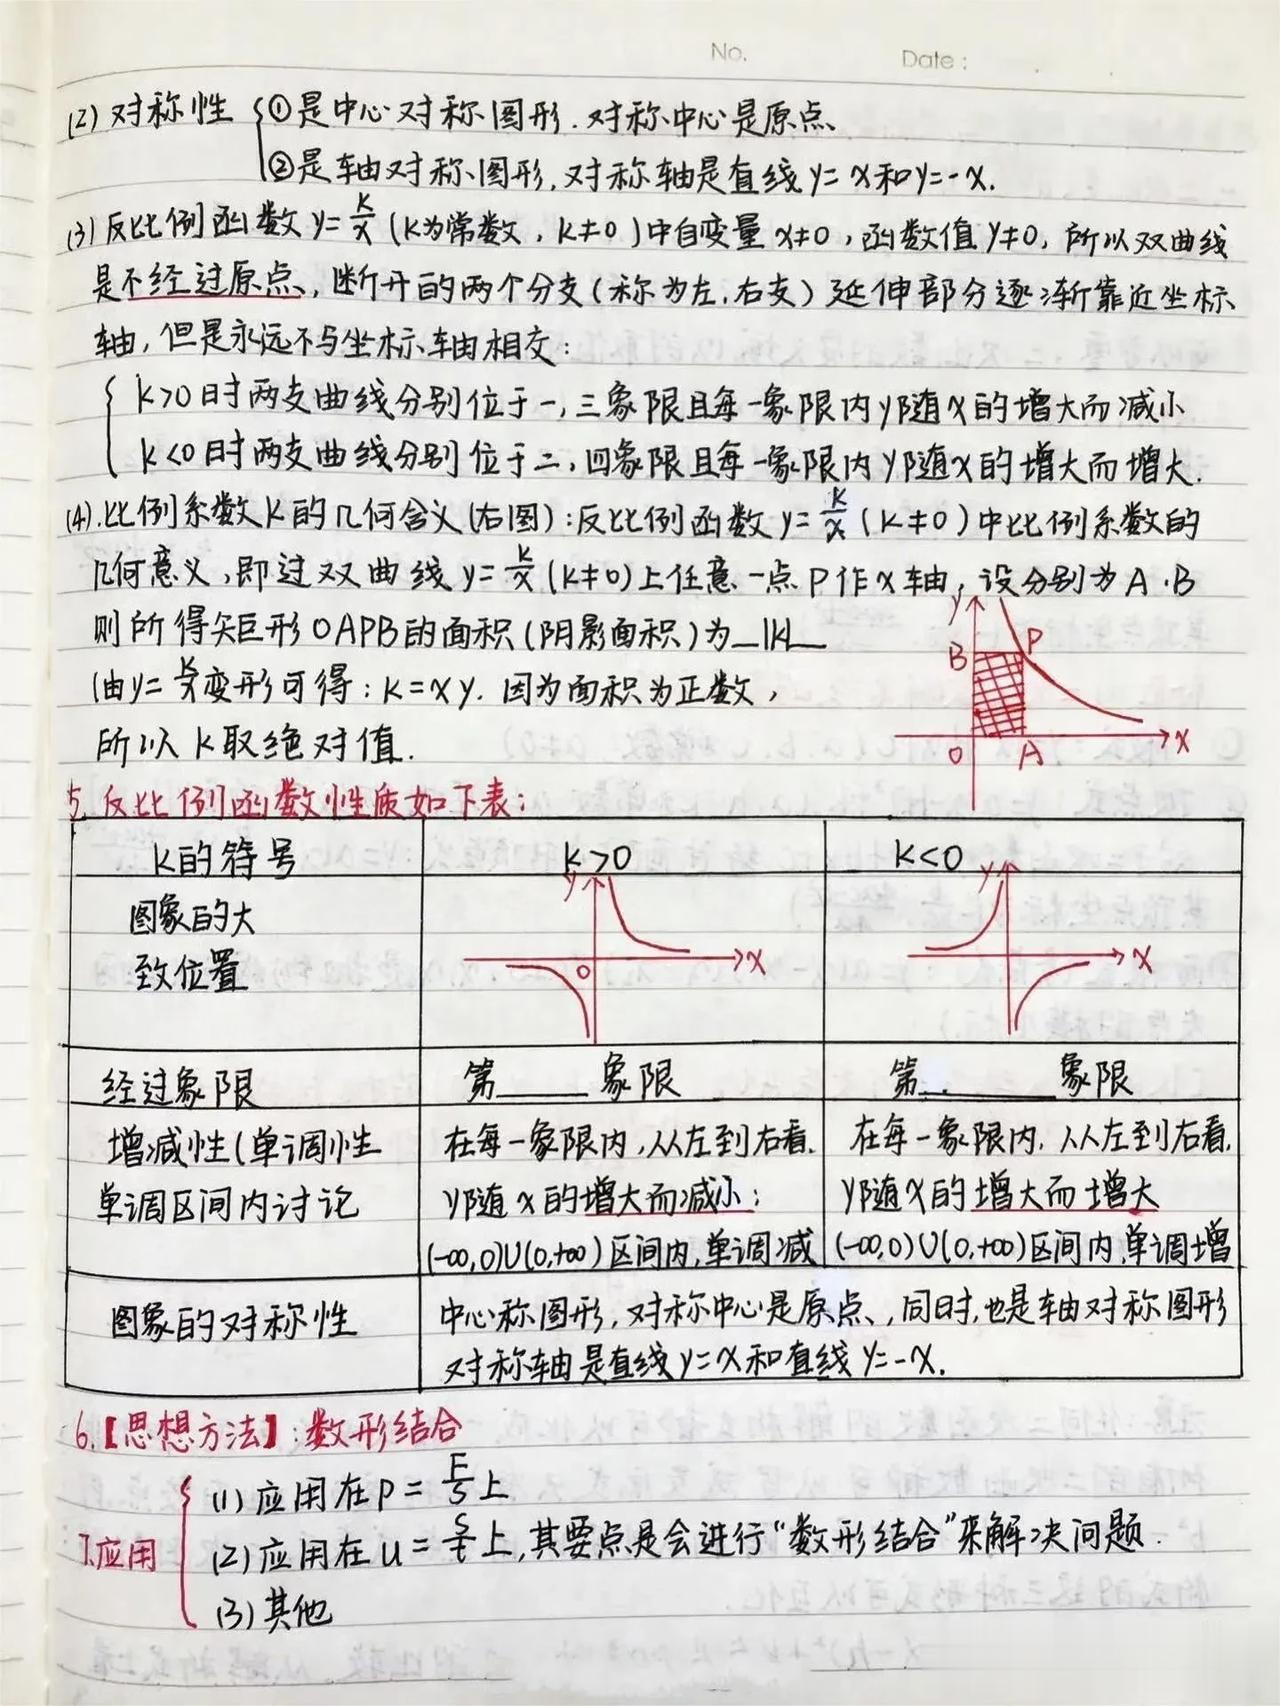 No.
Date:
(2) 对称性 ①是中心对称图形.对称中心是原点、
②是轴对称图形,对称轴是直线 y=x和y=-x.
(3) 反比例函数 y=k/x (k为常数,k≠0)中自变量 x≠0,函数值 y≠0, 所以双曲线
是不经过原点,断开的两个分支(称为左,右支)延伸部分逐渐靠近坐标
轴,但是永远不与坐标轴相交:
k>0时两支曲线分别位于一,三象限且每一象限内y随x的增大而减小
k<0时两支曲线分别位于二,四象限且每一象限内y随x的增大而增大.
(4).比例系数k的几何含义(右图):反比例函数 y=k/x (k≠0)中比例系数的
几何意义,即过双曲线 y=k/x (k≠0)上任意一点P作x轴,设分别为A.B
则所得矩形OAPB的面积(阴影面积)为_|k|_
(由y=k/x变形可得:k=xy. 因为面积为正数,
所以k取绝对值.
y
B P
O A x
5.反比例函数性质如下表:
k的符号 k>0 k<0
图象的大
致位置
y O x
y x
经过象限 第____象限 第____象限
增减性(单调性 在每一象限内,从左到右看. 在每一象限内,从左到右看.
单调区间内讨论 y随x的增大而减小; y随x的增大而增大
(-∞,0)∪(0,+∞)区间内,单调减 (-∞,0)∪(0,+∞)区间内,单调增
图象的对称性 中心称图形,对称中心是原点、,同时,也是轴对称图形
对称轴是直线y=x和直线y=-x.
6.【思想方法】:数形结合
7.应用 (1)应用在P=F/S上
(2)应用在u=S/t上,其要点是会进行“数形结合”来解决问题.
(3)其他